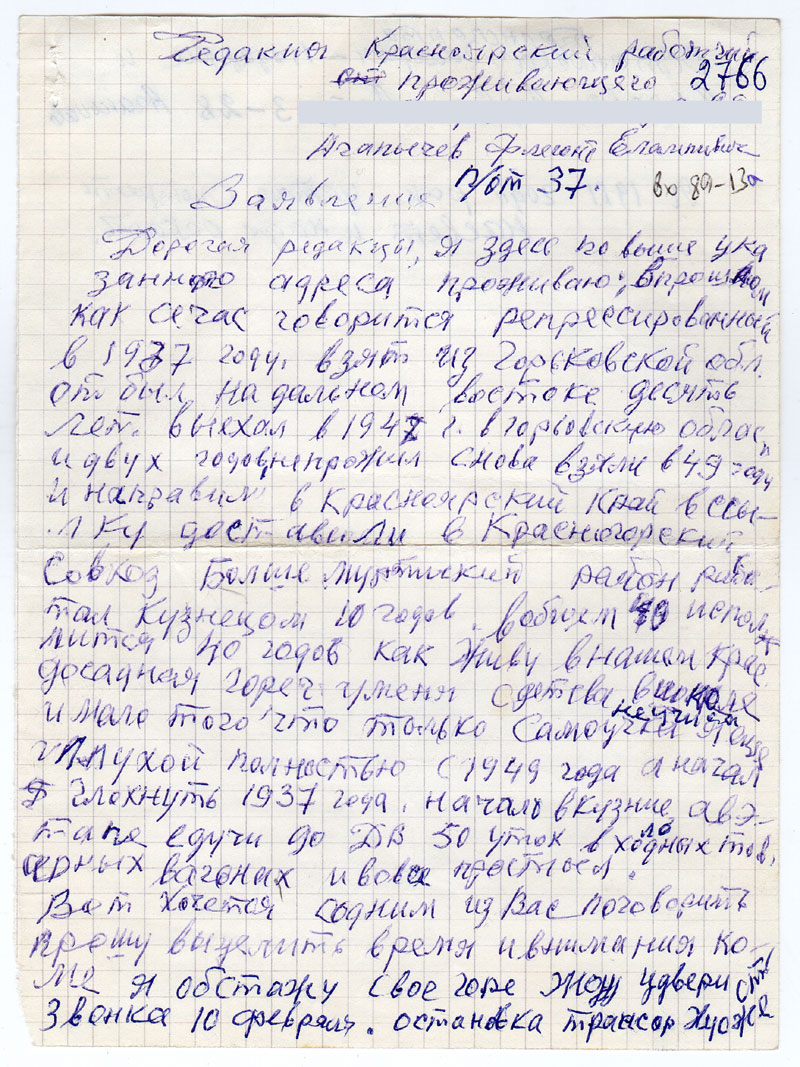 Редакцыя Красноярский рабочий
от проживающего 2766
Агапычев Флегонт Евлампивич
п/от 37. во 89-13а
Заявления
Дорогая редакцы, я здесь по выше ука
занного адреса проживаю, в прошлом
как сечас говорится репрессированный
в 1937 году. взят из Горьковской обл.
отбыл на дальном востоке десять
лет. выехал в 1947 г. в горьовскую облас
и двух годов непрожил снова взяли в 49 году
и направили в Красноярский Край в ссы-
лку доставили в Красногорский
Совхоз Больше муртинский район рабо-
тал Кузнецом 10 годов. вобщем 40 испол
нится 40 годов как живу в нашем Крае
досадная гореч уменя с детсва в школе
неучился
и мало того что только Самоучка я еще
глухой полностью с 1949 года а начал
глохнуть 1937 года. начало в кузнице а в э-
тапе едучи до ДВ 50 уток в холодных тов.
арных вагонах и вовсе простыл.
Вот хочется содним из Вас поговорить
прошу выделить время и внимания ко-
мне я обстажу свое горе жду у двери от
Звонка 10 февраля. остановка